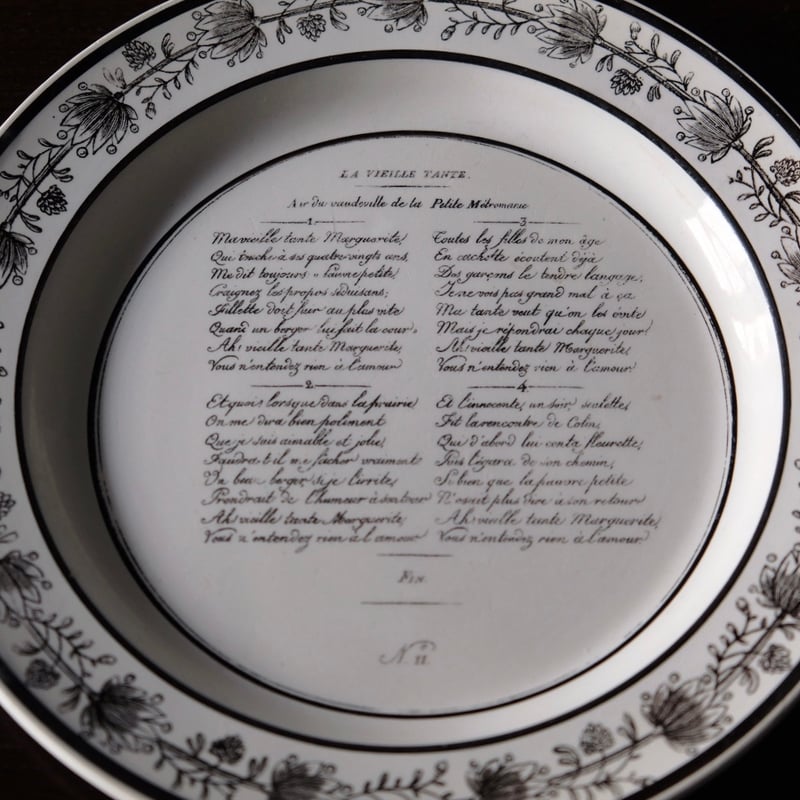 LA VIEILLE TANTE.
Air du vaudeville de la Petite Métromanie
1
Ma vieille tante Marguerite,
Qui touche à ses quatre vingts ans,
Me dit toujours « pauvre petite,
Craignez les propos séduisans;
Fillette doit fuir au plus vite
Quand un berger lui fait la cour.
Ah! vieille tante Marguerite,
Vous n'entendez rien à l'amour
2
Et quoi! lorsque dans la prairie
On me dira bien poliment
Que je suis aimable et jolie,
Faudra t-il me fâcher vraiment
Un beau berger si je l'irrite,
Prendrait de l'humeur à son tour
Ah vieille tante Marguerite,
Vous n'entendez rien à l'amour
3
Toutes les filles de mon âge
En cachette écoutent déjà
Des garçons le tendre langage;
Je ne vois pas grand mal à ça
Ma tante veut qu'on les évite
Mais je répondrai chaque jour!
Ah! vieille tante Marguerite,
Vous n'entendez rien à l'amour
4
Et l'innocente, un soir, seulette,
Fit la rencontre de Colin,
Qui d'abord lui conta fleurette,
Puis l'égara de son chemin,
Si bien que la pauvre petite
N'osait plus dire à son retour
Ah vieille tante Marguerite,
Vous n'entendez rien à l'amour
Fin.
N.º 11.